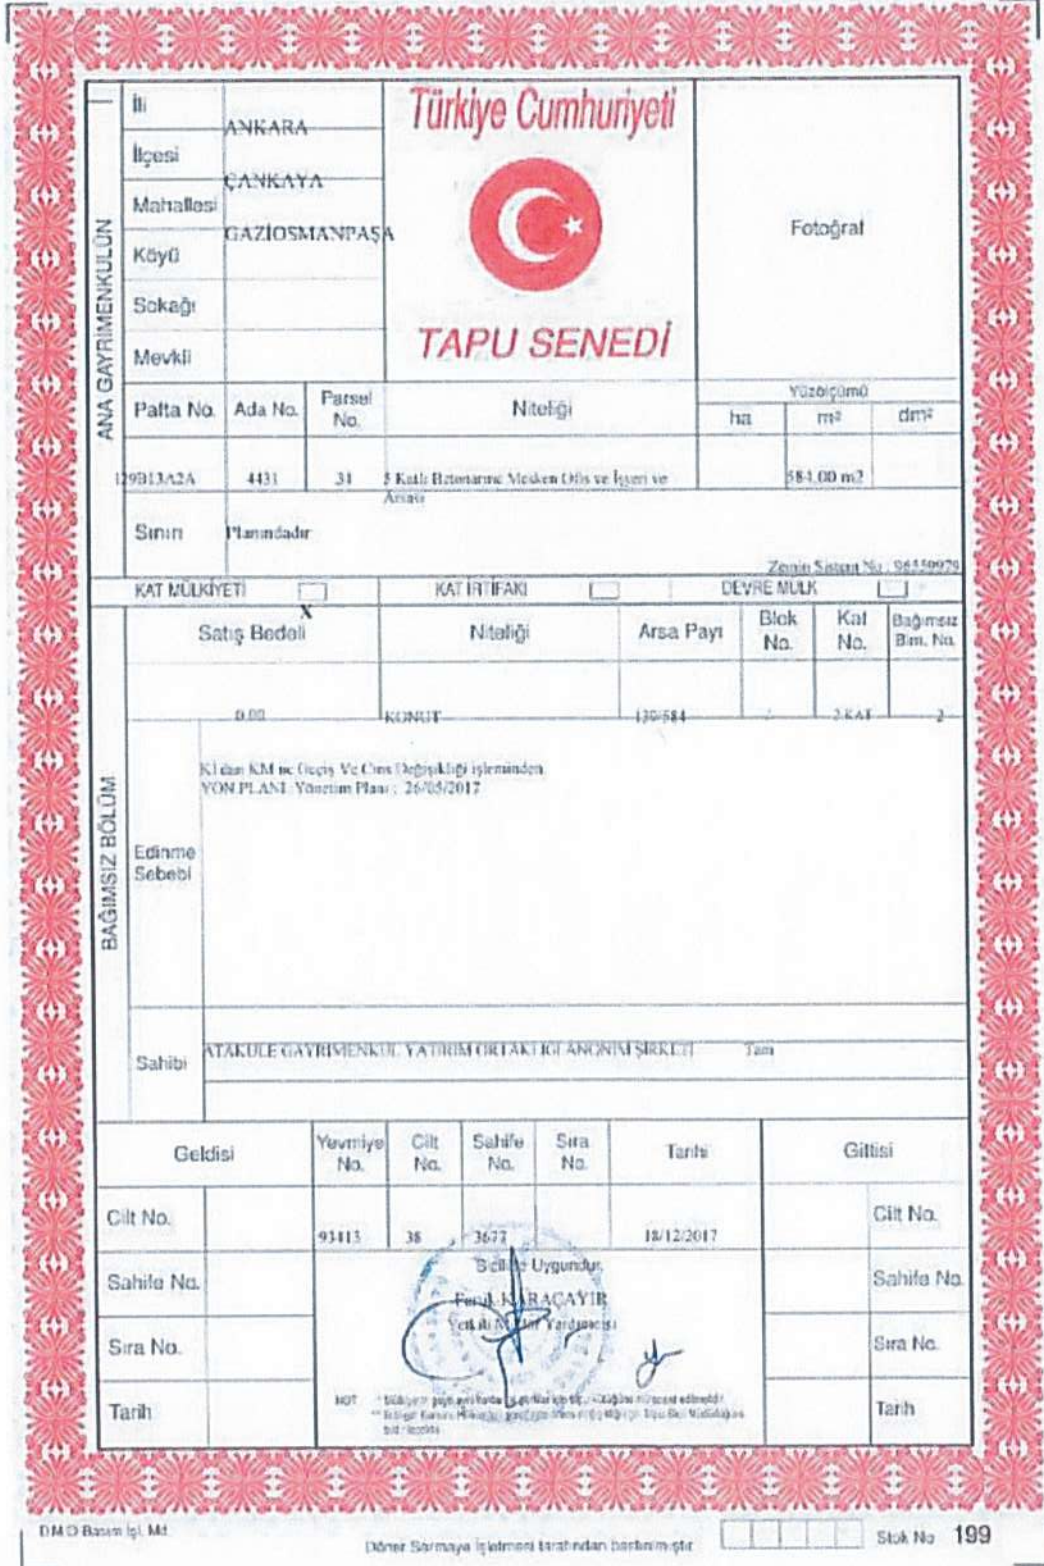 Türkiye Cumhuriyeti
TAPU SENEDİ
Fotoğraf
ANA GAYRİMENKULÜN
İli ANKARA
İlçesi ÇANKAYA
Mahallesi GAZİOSMANPAŞA
Köyü
Sokağı
Mevkii
Pafta No. Ada No. Parsel No. Niteliği Yüzölçümü
ha m² dm²
129B13A2A 4431 31 5 Katlı Betonarme Mesken Ofis ve İşyeri ve 584.00 m2
Arsası
Sınırı Planındadır
Zemin Sistem No : 96559979
KAT MÜLKİYETİ X KAT İRTİFAKI DEVRE MÜLK
BAĞIMSIZ BÖLÜM
Satış Bedeli Niteliği Arsa Payı Blok No. Kat No. Bağımsız Blm. No.
0.00 KONUT 130/584 2.KAT 2
Edinme Sebebi
Kİ dan KM ne Geçiş Ve Cins Değişikliği işleminden
YÖN.PLANI: Yönetim Planı : 26/05/2017
Sahibi
ATAKULE GAYRİMENKUL YATIRIM ORTAKLIĞI ANONİM ŞİRKETİ Tam
Geldisi Yevmiye No. Cilt No. Sahife No. Sıra No. Tarihi Gittisi
Cilt No. 93413 38 3677 18/12/2017 Cilt No.
Sahife No. Siciline Uygundur. Sahife No.
KARAÇAYIR
Yetkili Müdür Yardımcısı
Sıra No. Sıra No.
Tarih Tarih
NOT
D.M.O Basım İşl. Md.
Döner Sermaye İşletmesi tarafından bastırılmıştır
Stok No 199